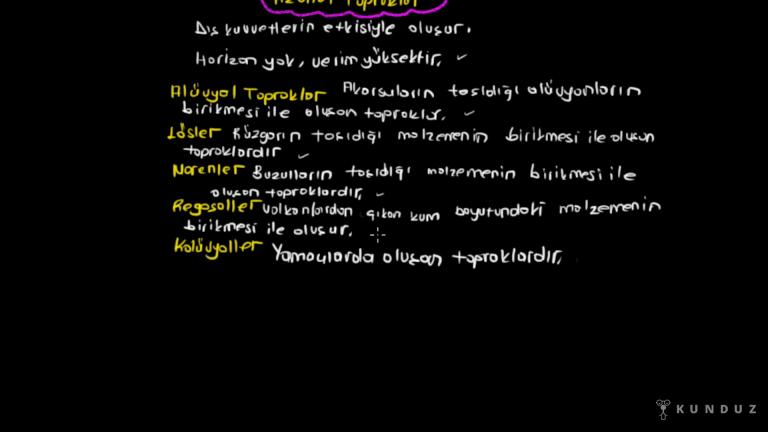 Azonal Topraklar
Dış kuvvetlerin etkisiyle oluşur.
Horizon yok, verim yüksektir.
Alüvyal Topraklar Akarsuların taşıdığı alüvyonların
birikmesi ile oluşan topraklar.
Lösler Rüzgarın taşıdığı malzemenin birikmesi ile oluşan
topraklardır
Morenler Buzulların taşıdığı malzemenin birikmesi ile
oluşan topraklardır.
Regosoller volkanlardan çıkan kum boyutundaki malzemenin
birikmesi ile oluşur.
Kolüvyaller Yamaçlarda oluşan topraklardır.
KUNDUZ